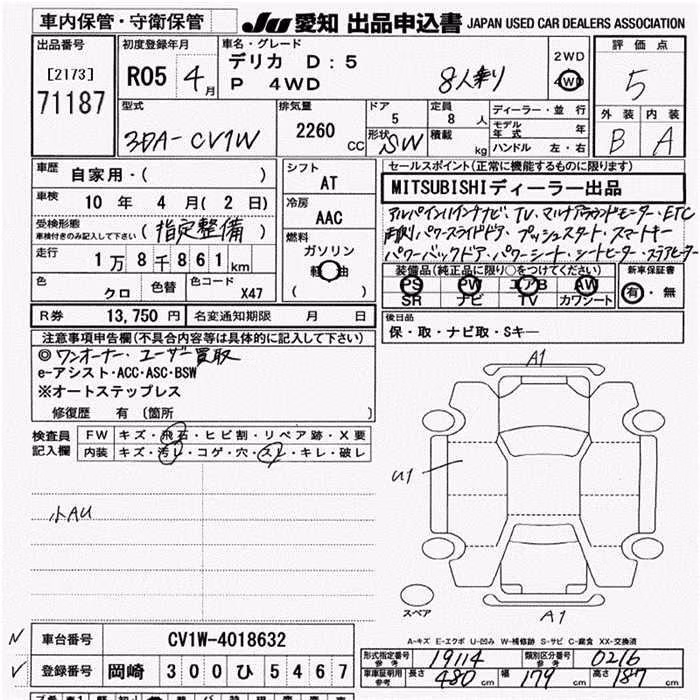 車内保管・守衛保管
JU 愛知 出品申込書 JAPAN USED CAR DEALERS ASSOCIATION
出品番号
[2173]
71187
初度登録年月
R05 4月
車名・グレード
デリカ D:5
P 4WD
8人乗り
2WD
4WD
評価点
5
外装 内装
B A
型式
3DA-CV1W
排気量
2260 CC
ドア
5
定員
8 人
形状
SW
積載
kg
ディーラー・並行
モデル年式 年
ハンドル 左・右
車歴
自家用・( )
車検
10 年 4 月 ( 2 日)
受検形態
車検付きのみ記入して下さい
(指定整備)
走行
1万8千861km
色
クロ
色替
色コード
X47
シフト
AT
冷房
AAC
燃料
ガソリン
軽油
( )
セールスポイント(正常に機能するものに限ります)
MITSUBISHIディーラー出品
アルパインハインチナビ・TV・マルチアラウンドモニター・ETC
両側パワースライドドア・プッシュスタート・スマートキー
パワーバックドア・パワーシート・シートヒーター・ステアヒーター
装備品(純正品に限り○をつけてください)
PS PW エアB AW
SR ナビ TV カワシート
新車保証書
有・無
R券 13,750 円
名変通知期限 月 日
後日品
保・取・ナビ取・Sキー
注意事項申告欄(不具合内容等は具体的に記入して下さい)
◎ワンオーナー・ユーザー買取
e-アシスト・ACC・ASC・BSW
※オートステップレス
修復歴 有 (箇所 )
検査員
記入欄
FW キズ・飛石・ヒビ割・リペア跡・X要
内装 キズ・汚レ・コゲ・穴・スレ・キレ・破レ
小AU
A1
U1
スペア
A1
A-キズ E-エクボ U-凹み W-補修跡 S-サビ C-腐食 XX-交換済
N 車台番号 CV1W-4018632
✓ 登録番号 岡崎 300 ひ 5467
形式指定番号
参考
19114
類別区分番号
参考
0216
車車証明用
参考
長さ 480 cm 幅 179 cm 高さ 187 cm